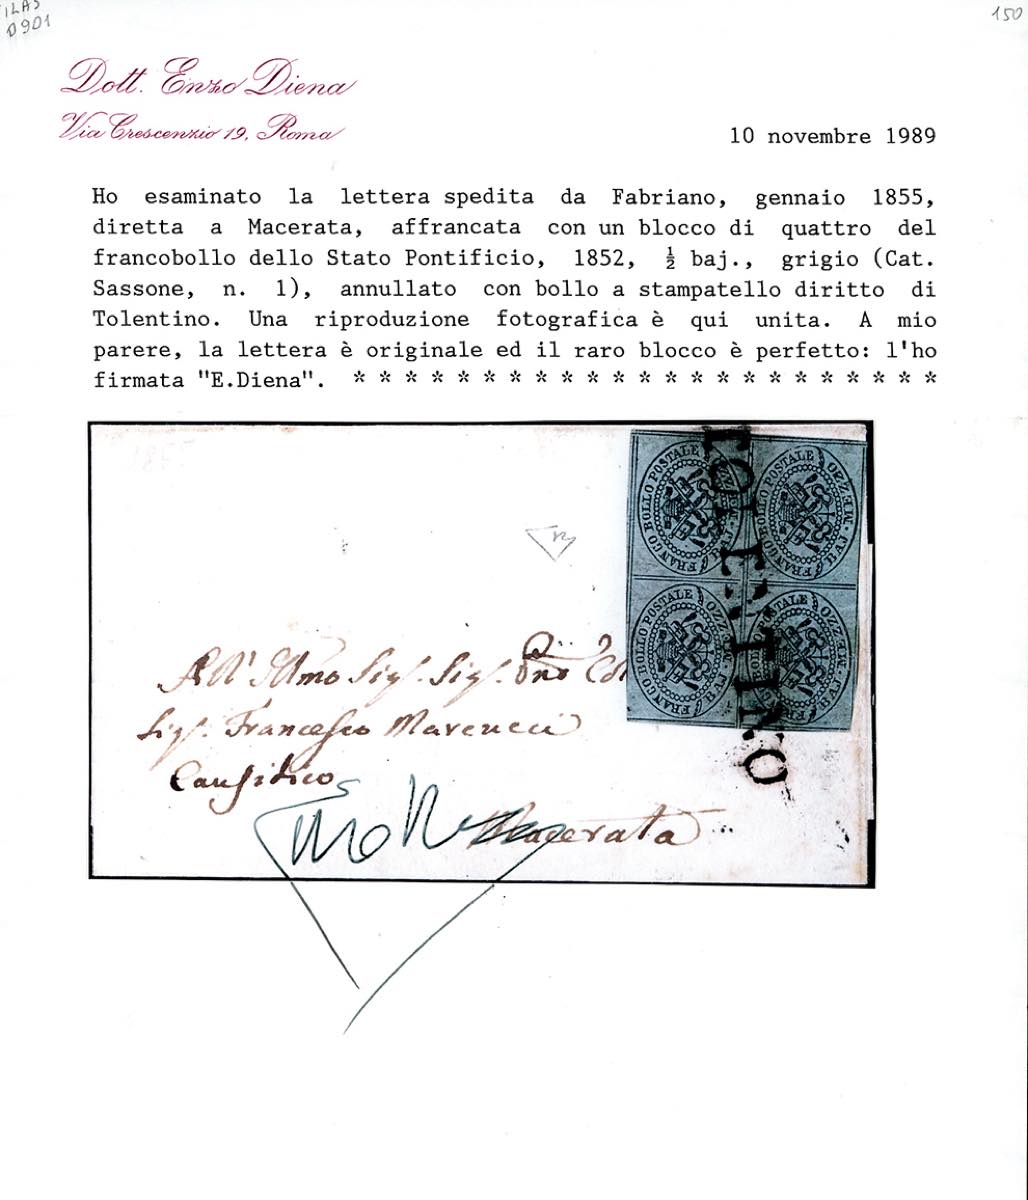 0901
150
Dott. Enzo Diena
Via Crescenzio 19, Roma
10 novembre 1989
Ho esaminato la lettera spedita da Fabriano, gennaio 1855,
diretta a Macerata, affrancata con un blocco di quattro del
francobollo dello Stato Pontificio, 1852, ½ baj., grigio (Cat.
Sassone, n. 1), annullato con bollo a stampatello diritto di
Tolentino. Una riproduzione fotografica è qui unita. A mio
parere, la lettera è originale ed il raro blocco è perfetto: l'ho
firmata "E.Diena". * * * * * * * * * * * * * * * * * * * * * * *
FRANCO BOLLO POSTALE
FRANCO BOLLO POSTALE MEZZO BAJ.
FRANCO BOLLO POSTALE MEZZO BAJ.
POSTALE MEZZO BAJ.
TOLENTINO
All' Illmo Sig. Sig.
Sig. Francesco Marcucci
Causidico
Macerata